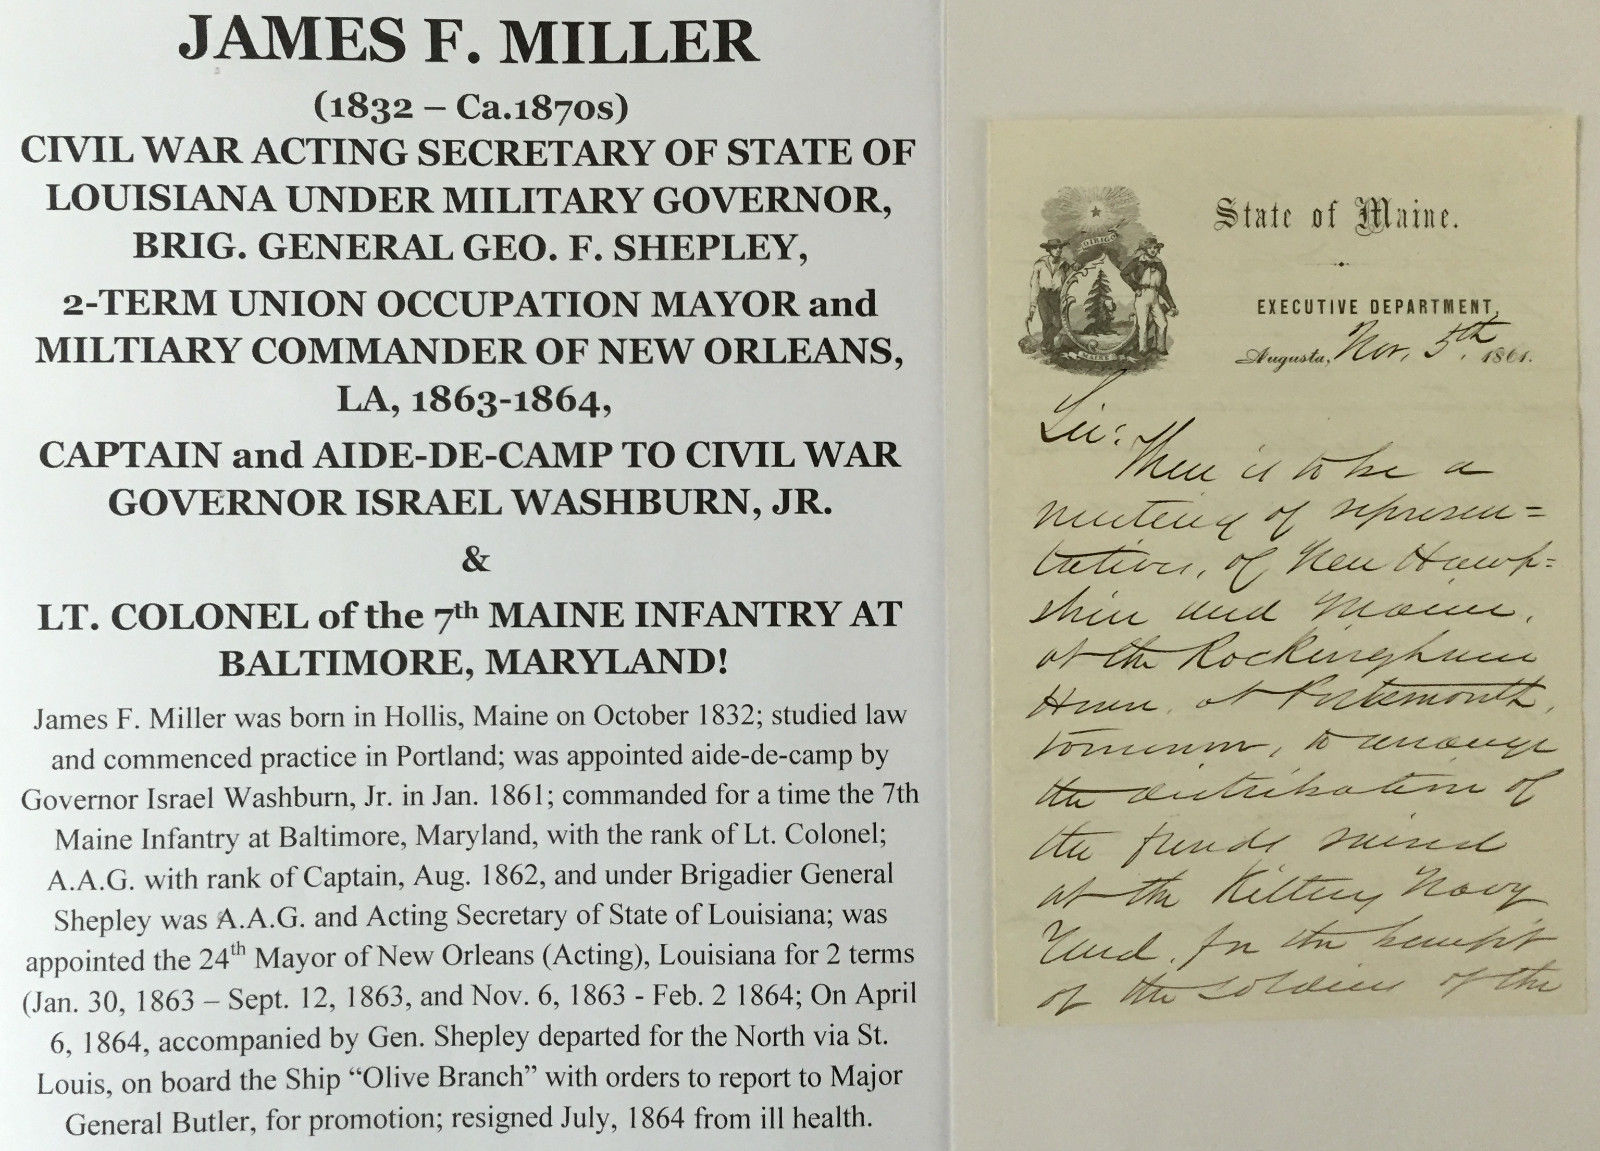 JAMES F. MILLER
(1832 – Ca.1870s)
CIVIL WAR ACTING SECRETARY OF STATE OF
LOUISIANA UNDER MILITARY GOVERNOR,
BRIG. GENERAL GEO. F. SHEPLEY,
2-TERM UNION OCCUPATION MAYOR and
MILTIARY COMMANDER OF NEW ORLEANS,
LA, 1863-1864,
CAPTAIN and AIDE-DE-CAMP TO CIVIL WAR
GOVERNOR ISRAEL WASHBURN, JR.
&
LT. COLONEL of the 7th MAINE INFANTRY AT
BALTIMORE, MARYLAND!
James F. Miller was born in Hollis, Maine on October 1832; studied law
and commenced practice in Portland; was appointed aide-de-camp by
Governor Israel Washburn, Jr. in Jan. 1861; commanded for a time the 7th
Maine Infantry at Baltimore, Maryland, with the rank of Lt. Colonel;
A.A.G. with rank of Captain, Aug. 1862, and under Brigadier General
Shepley was A.A.G. and Acting Secretary of State of Louisiana; was
appointed the 24th Mayor of New Orleans (Acting), Louisiana for 2 terms
(Jan. 30, 1863 – Sept. 12, 1863, and Nov. 6, 1863 - Feb. 2 1864; On April
6, 1864, accompanied by Gen. Shepley departed for the North via St.
Louis, on board the Ship “Olive Branch” with orders to report to Major
General Butler, for promotion; resigned July, 1864 from ill health.
DIRIGO
MAINE
State of Maine.
EXECUTIVE DEPARTMENT,
Augusta, Nov. 5th 1861.
Sir:
There is to be a
meeting of represen=
tatives, of New Hamp=
shire and Maine,
at the Rockingham
House, at Portsmouth,
tomorrow, to arrange
the distribution of
the funds raised
at the Kittery Navy
Yard, for the benefit
of the soldiers of the